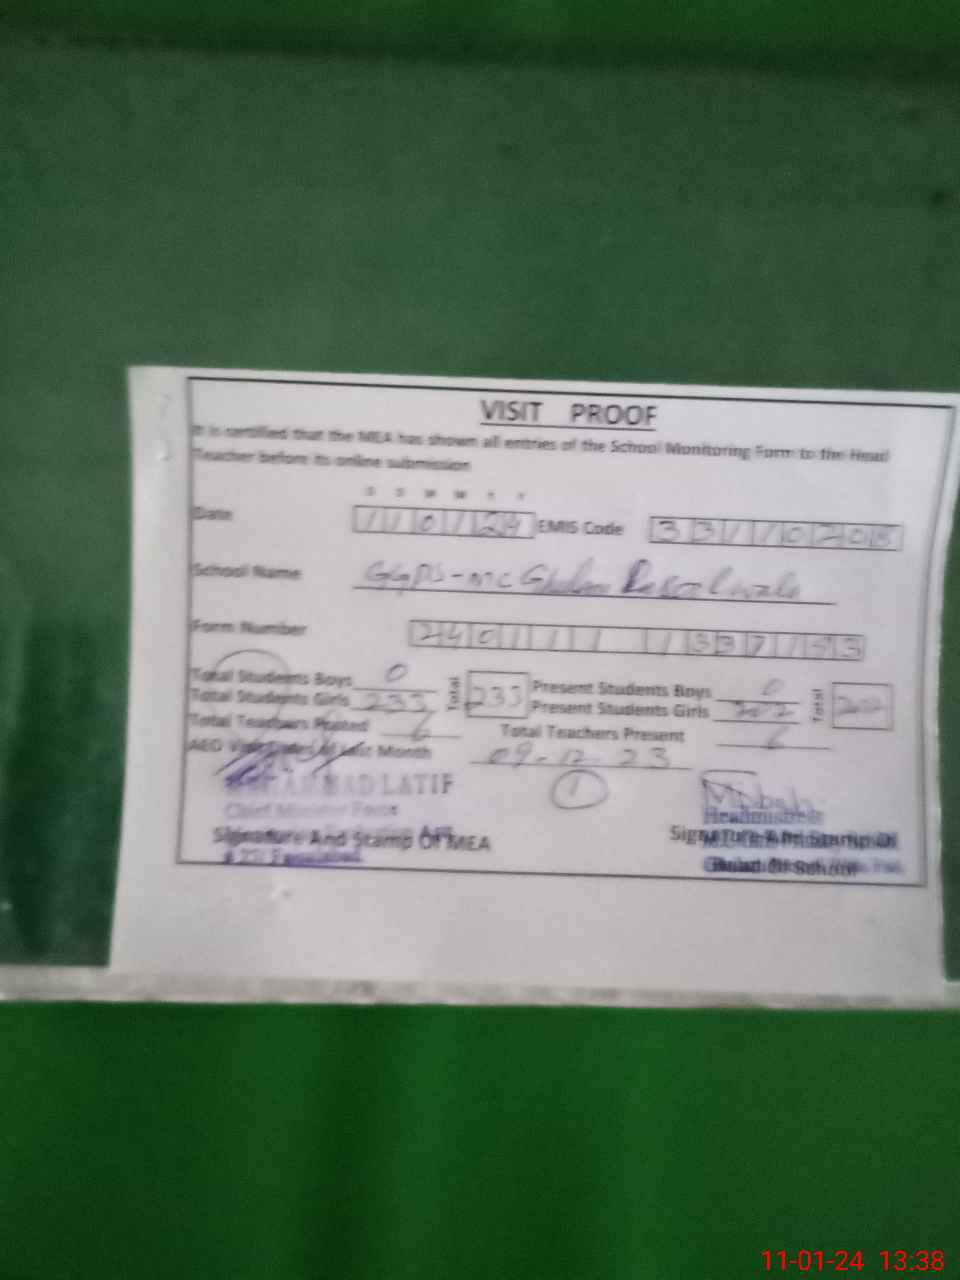 VISIT PROOF
It is certified that the MEA has shown all entries of the School Monitoring Form to the Head
Teacher before its online submission
D D M M Y Y
Date 110124 EMIS Code 33110208
School Name GGPS-MC Ghulam Rasool wala
Form Number
Total Students Boys 0 Total 233 Present Students Boys 0 Total 202
Total Students Girls 233 Present Students Girls 202
Total Teachers Posted 6 Total Teachers Present 6
AEO Visit Dates of Last Month 09-12-23
1
AHMAD LATIF
Chief Minister Force
Signature And Stamp Of MEA
Headmistress
Signature And Stamp Of
Head Of School
11-01-24 13:38